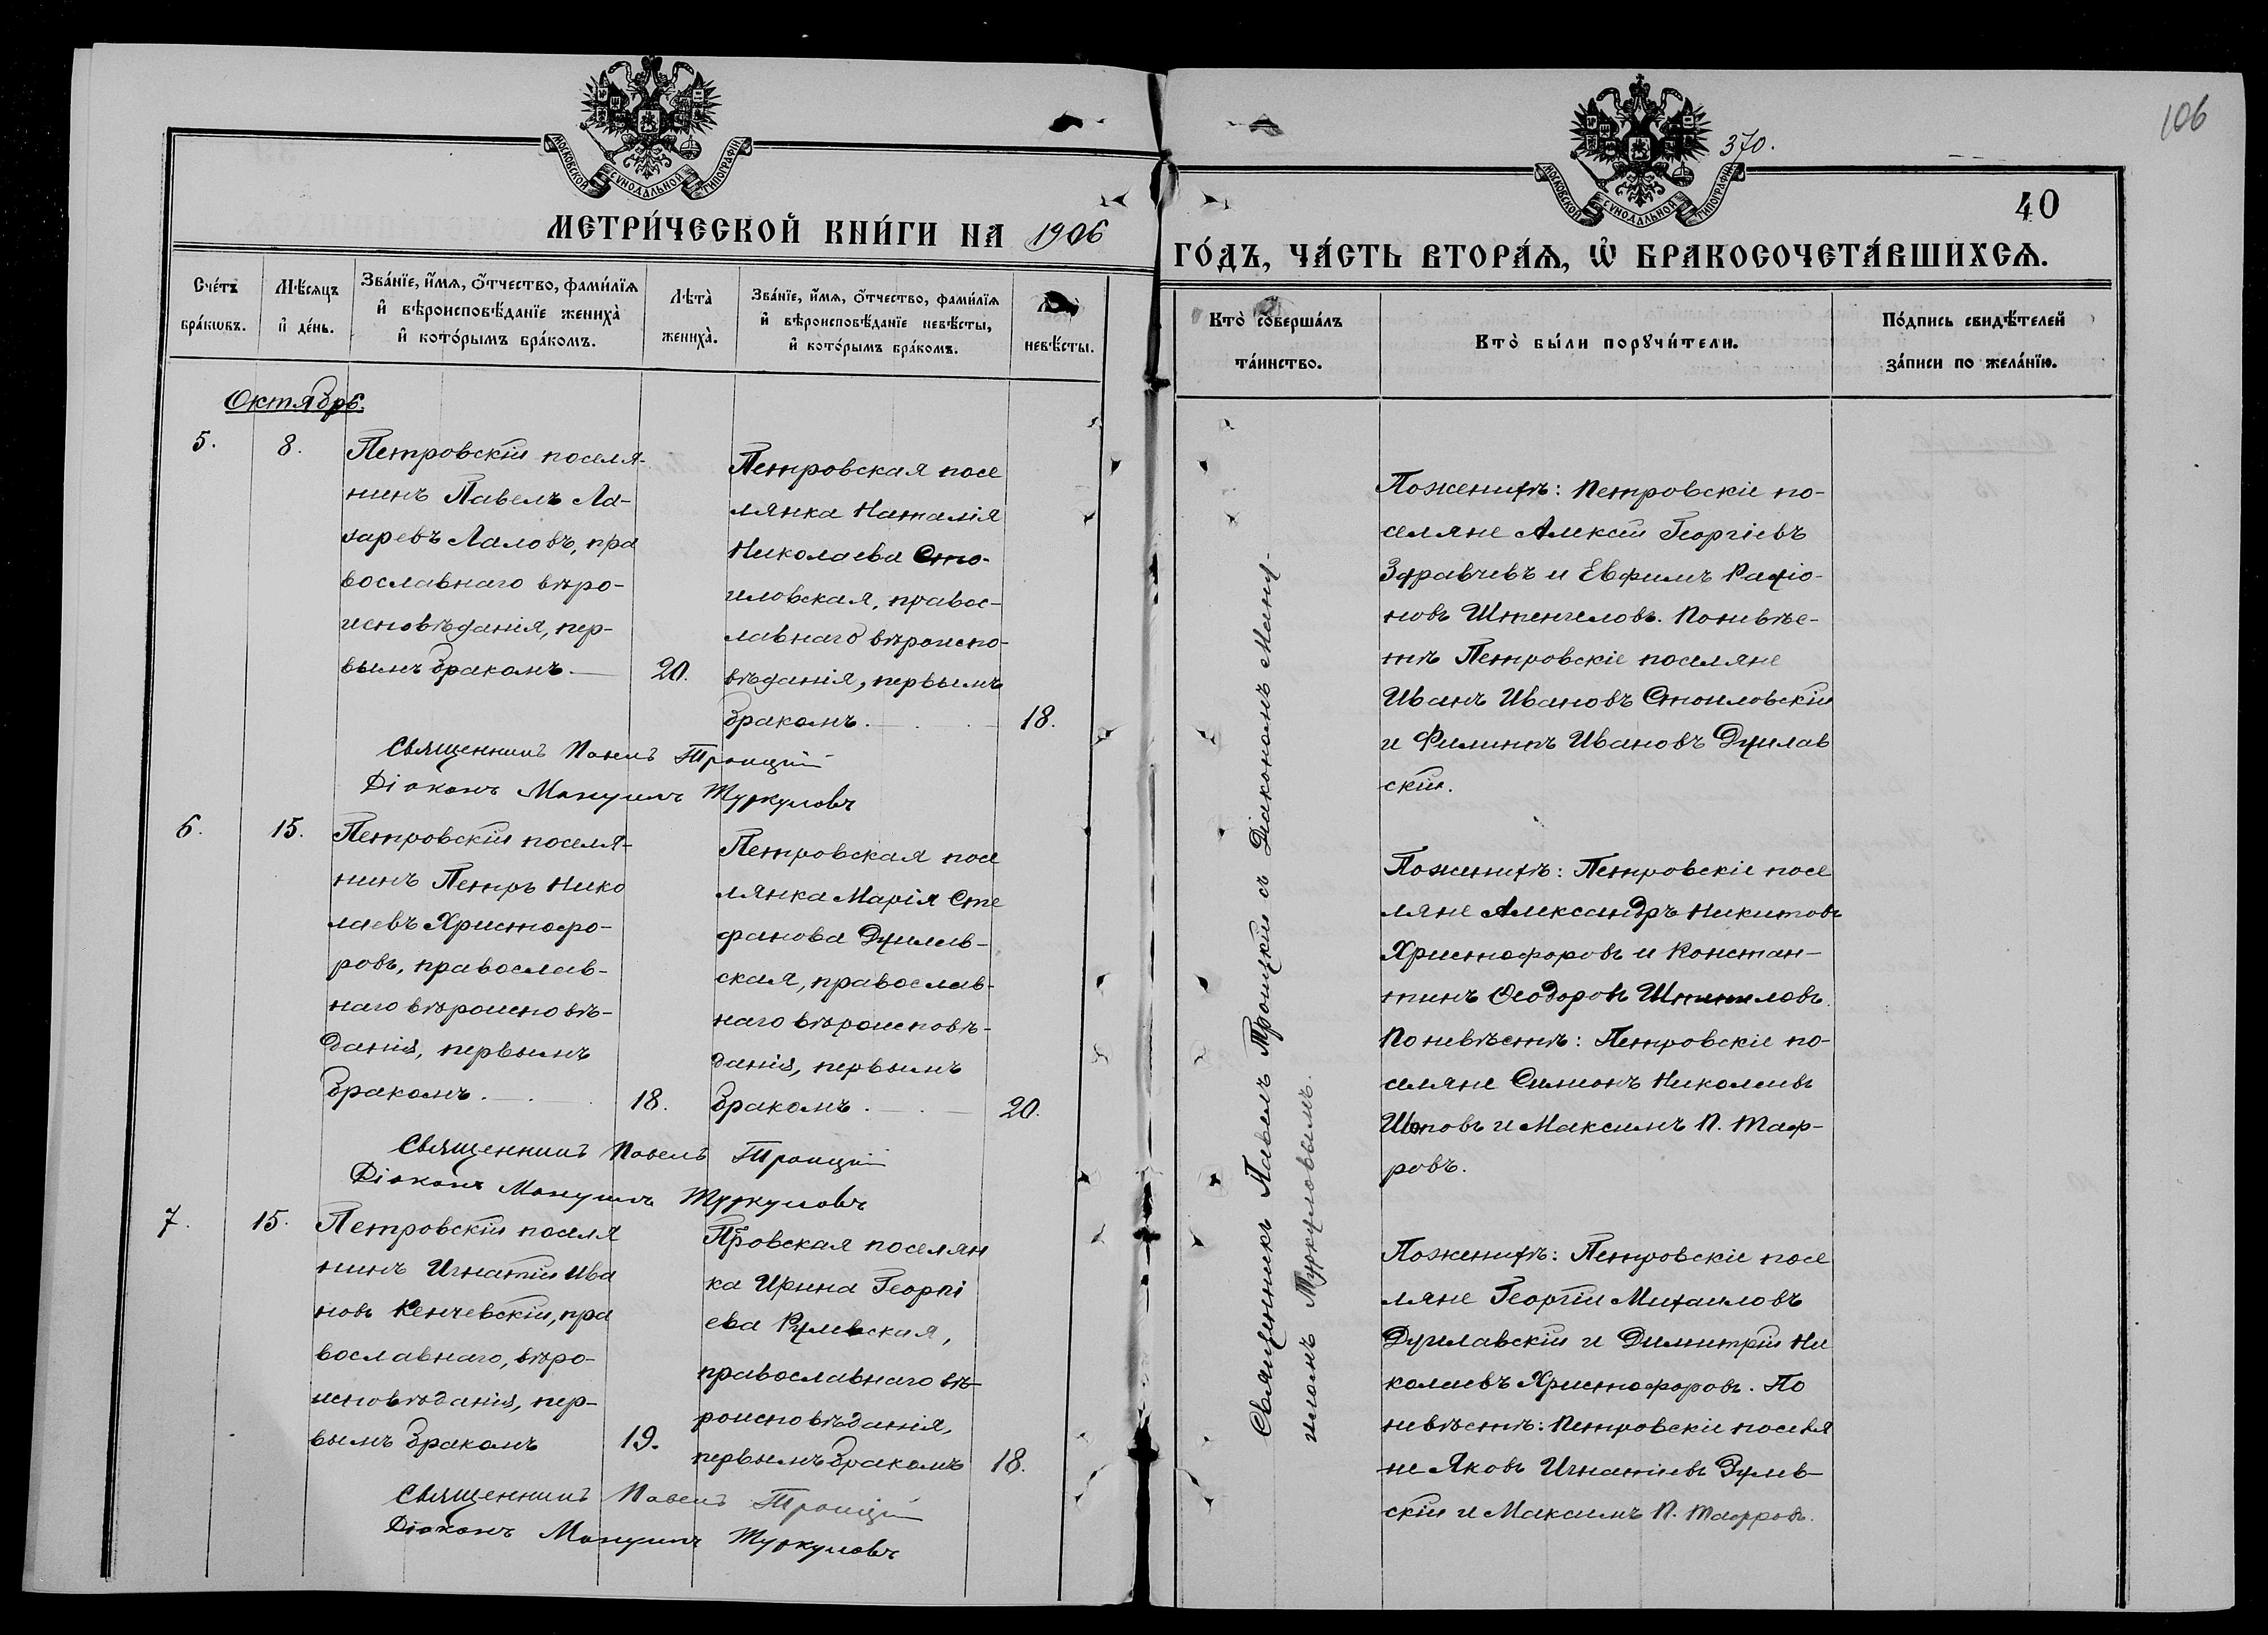 106
370.
МОСКОВСКОЙ СѴНОДАЛЬНОЙ ТИПОГРАФІИ
МОСКОВСКОЙ СѴНОДАЛЬНОЙ ТИПОГРАФІИ
40
МЕТРИ́ЧЕСКОЙ КНИ́ГИ НА 1906
ГО́ДЪ, ЧА́СТЬ ВТОРА́Ѧ, Ѡ҆ БРАКОСОЧЕТА́ВШИХСѦ.
Сче́тъ
бра́кѡвъ.
Мѣ́сяцъ
и҆ де́нь.
Зва́нїе, и҆́мѧ, о҆́тчество, фами́лїѧ
и҆ вѣроисповѣ́данїе жениха̀
и҆ кото́рымъ бра́комъ.
Лѣта̀
жениха̀.
Зва́нїе, и҆́мѧ, о҆́тчество, фами́лїѧ
и҆ вѣроисповѣ́данїе невѣ́сты,
и҆ кото́рымъ бра́комъ.
невѣ́сты.
Кто̀ соверша́лъ
та́инство.
Кто̀ бы́ли порꙋчи́тели.
По́дпись свидѣ́телей
за́писи по жела́нїю.
Октябрь.
5.
8.
Петровскій поселя-
нинъ Павелъ Ла-
заревъ Лаловъ, пра
вославнаго вѣро-
исповѣданія, пер-
вымъ бракомъ.
20.
Петровская посе
лянка Наталія
Николаева Сто-
иловская, правос-
лавнаго вѣроиспо-
вѣданія, первымъ
бракомъ.
18.
Священникъ Павелъ Троицкій
Діаконъ Мануилъ Туркуловъ
По женихѣ: Петровскіе по-
селяне Алексій Георгіевъ
Здравчевъ и Евфимъ Радіо-
новъ Штенгеловъ. По невѣс-
тѣ Петровскіе поселяне
Иванъ Ивановъ Стоиловскій
и Филиппъ Ивановъ Дуилав
скій.
6.
15.
Петровскій поселя-
нинъ Петръ Нико
лаевъ Христофо-
ровъ, православ-
наго вѣроисповѣ-
данія, первымъ
бракомъ.
18.
Петровская посе
лянка Марія Сте
фанова Дуилов-
ская, православ-
наго вѣроисповѣ-
данія, первымъ
бракомъ.
20.
Священникъ Павелъ Троицкій
Діаконъ Мануилъ Туркуловъ
По женихѣ: Петровскіе посе
ляне Александръ Никитовъ
Христофоровъ и Констан-
тинъ Ѳеодоровъ
По невѣстѣ: Петровскіе по-
селяне Симіонъ Николаевъ
и Максимъ П. Таф-
ровъ.
7.
15.
Петровскій поселя
нинъ Игнатій Ива
новъ Кенчевскій, пра
вославнаго, вѣро-
исповѣданія, пер-
вымъ бракомъ
19.
Пвровская поселян
ка Ирина Георгі
ева
православнаго вѣ-
роисповѣданія,
первымъ бракомъ
18.
Священникъ Павелъ Троицкій
Діаконъ Мануилъ Туркуловъ
По женихѣ: Петровскіе посе
ляне Георгій Михаиловъ
Дуилавскій и Димитрій Ни
колаевъ Христофоровъ. По
невѣстѣ: Петровскіе поселя
не Яковъ Игнатіевъ
скій и Максимъ П. Тафровъ.
Священникъ Павелъ Троицкій съ Діакономъ Ману-
иломъ Туркуловымъ.